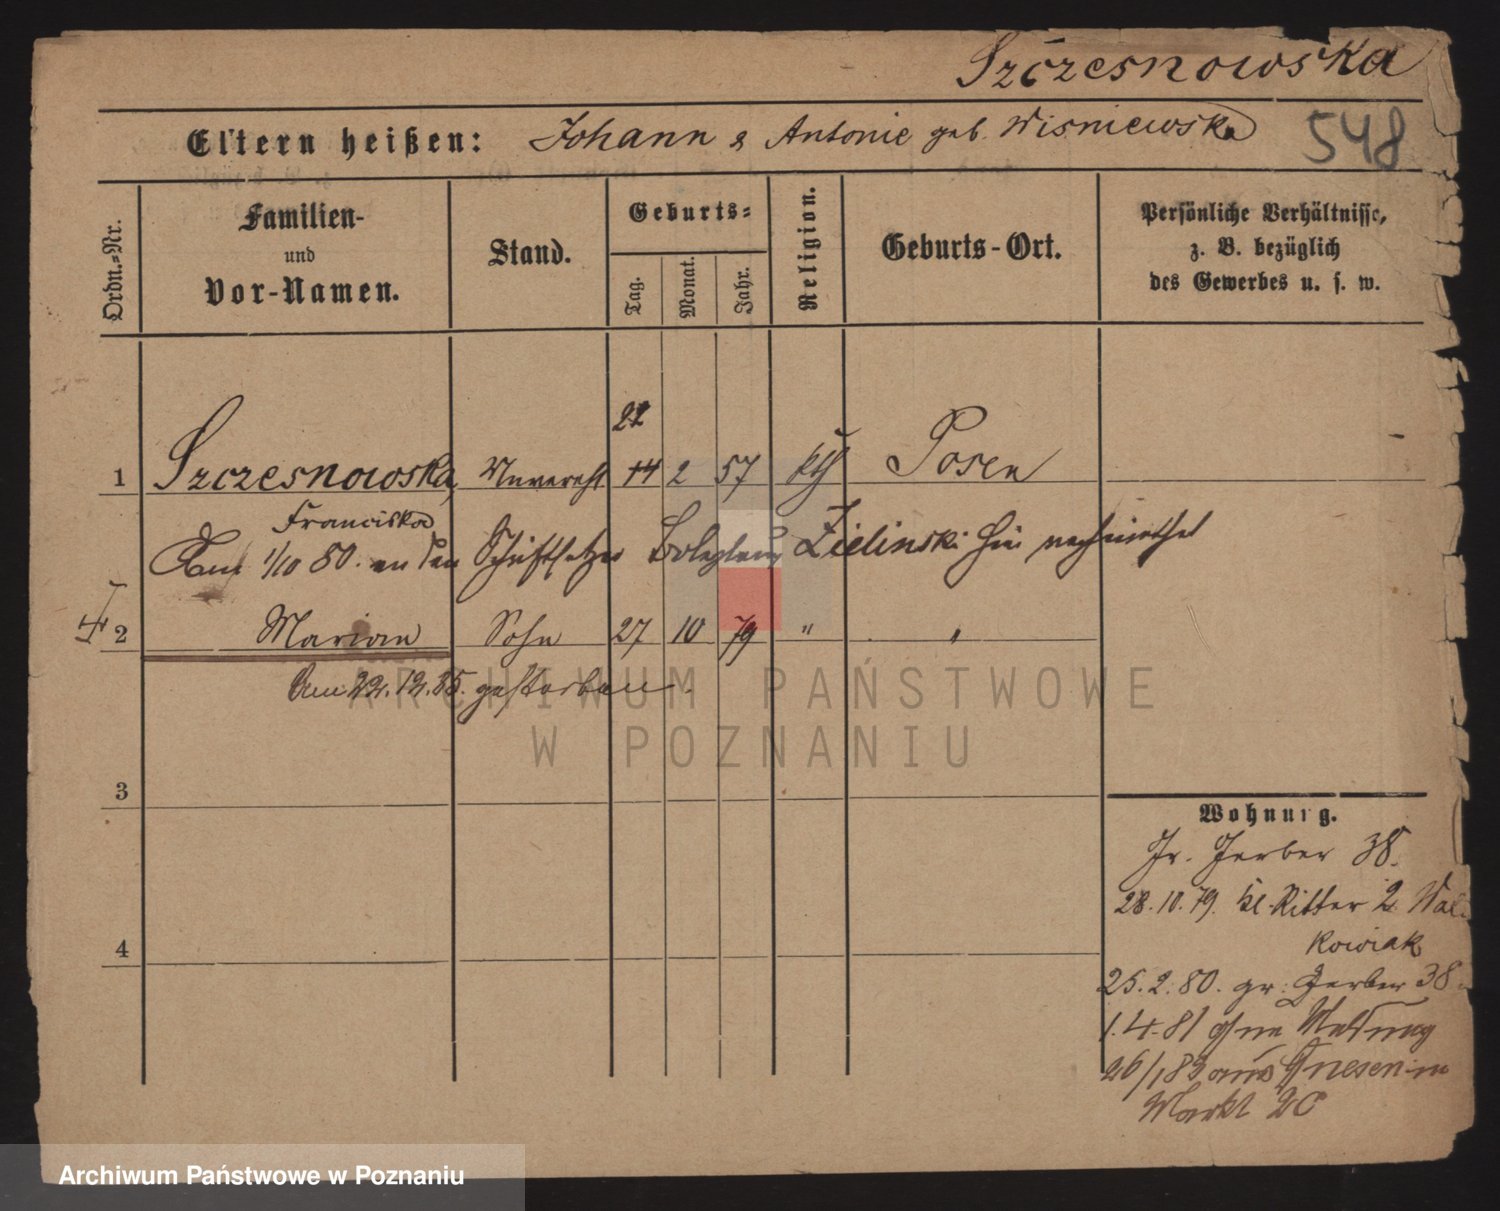 Szczesnowska
Eltern heißen: Johann & Antonie geb. Wisniewska
548
Ordn.-Nr.
Familien-
und
Vor-Namen.
Stand.
Geburts-
Tag.
Monat.
Jahr.
Religion.
Geburts-Ort.
Persönliche Verhältnisse,
z. B. bezüglich
des Gewerbes u. s. w.
22
1 Szczesnowska, Unvereht 14 2 57 kth Posen
Franciska
Am 1/10 80. an den Schriftsetzer Boleslaus Zielinski hier
2 Marian Sohn 27 10 79 " "
Am 22.12.85. gestorben.
3
4
Wohnung.
Gr. Gerber 38.
28.10.79. Kl. Ritter 2.
kowiak
25.2.80. gr. Gerber 38.
1.4.81 ohne Meldung
aus Gnesen
Markt
ARCHIWUM PAŃSTWOWE
W POZNANIU
Archiwum Państwowe w Poznaniu